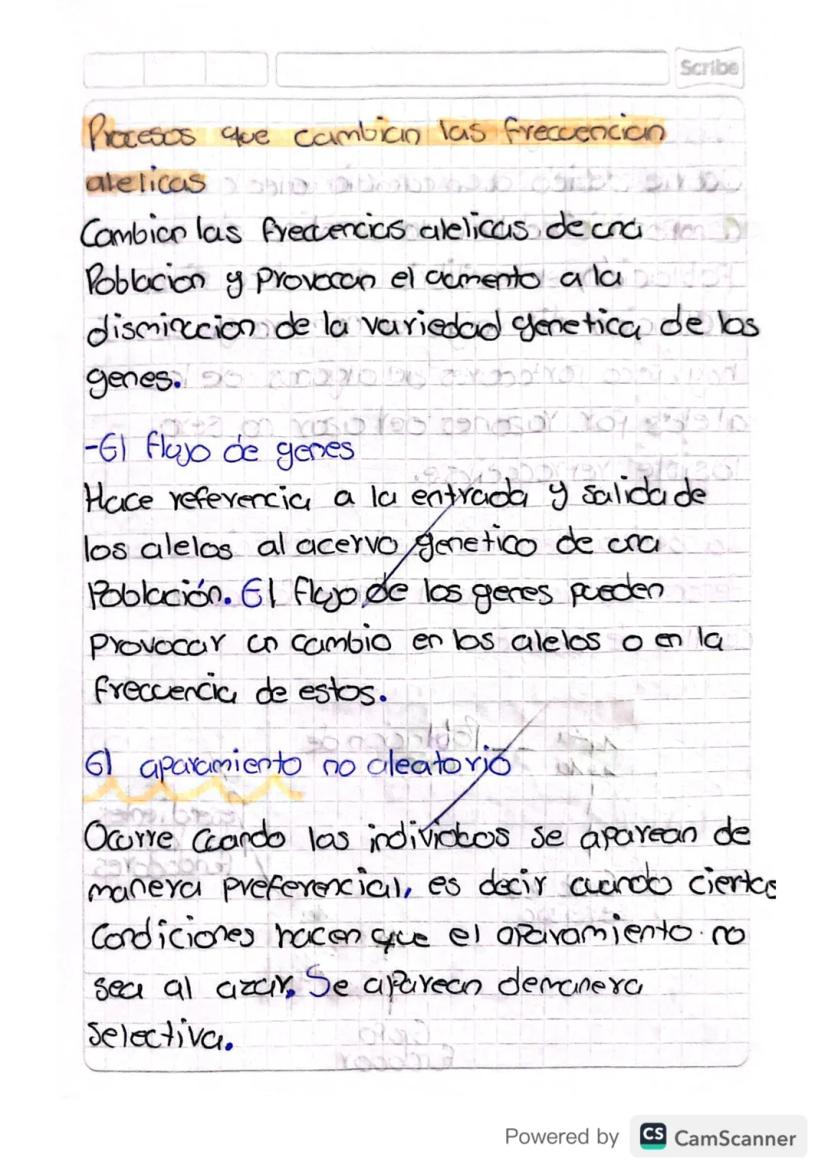 Scribe
Procesos que cambian las frecuencian
alelicas
Cambian las frecuencias alelicas de una
Poblacion y provocan el aumento a la
disminuccion de la variedad genetica de los
genes.
-El flujo de genes
Hace referencia a la entrada y salida de
los alelos al acervo genetico de una
Población. El flujo de los genes pueden
Provocar un cambio en los alelos o en la
freccuencia de estos.
El aparamiento no aleatorio
Ocurre cuando los individuos se aparean de
manera preferencial, es decir cuando ciertas
Condiciones hacen que el aparamiento no
sea al azar. Se aparean de manera
Selectiva.
Powered by CS CamScanner